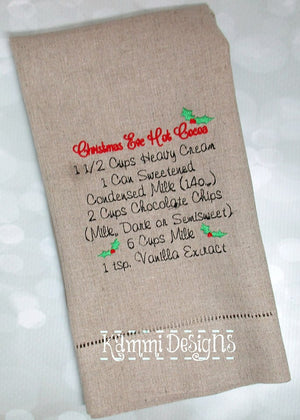 Christmas Eve Hot Cocoa
1 1/2 Cups Heavy Cream
1 Can Sweetened
Condensed Milk (14oz)
2 Cups Chocolate Chips
(Milk, Dark or Semisweet)
6 Cups Milk
1 tsp. Vanilla Extract
Kammi Designs